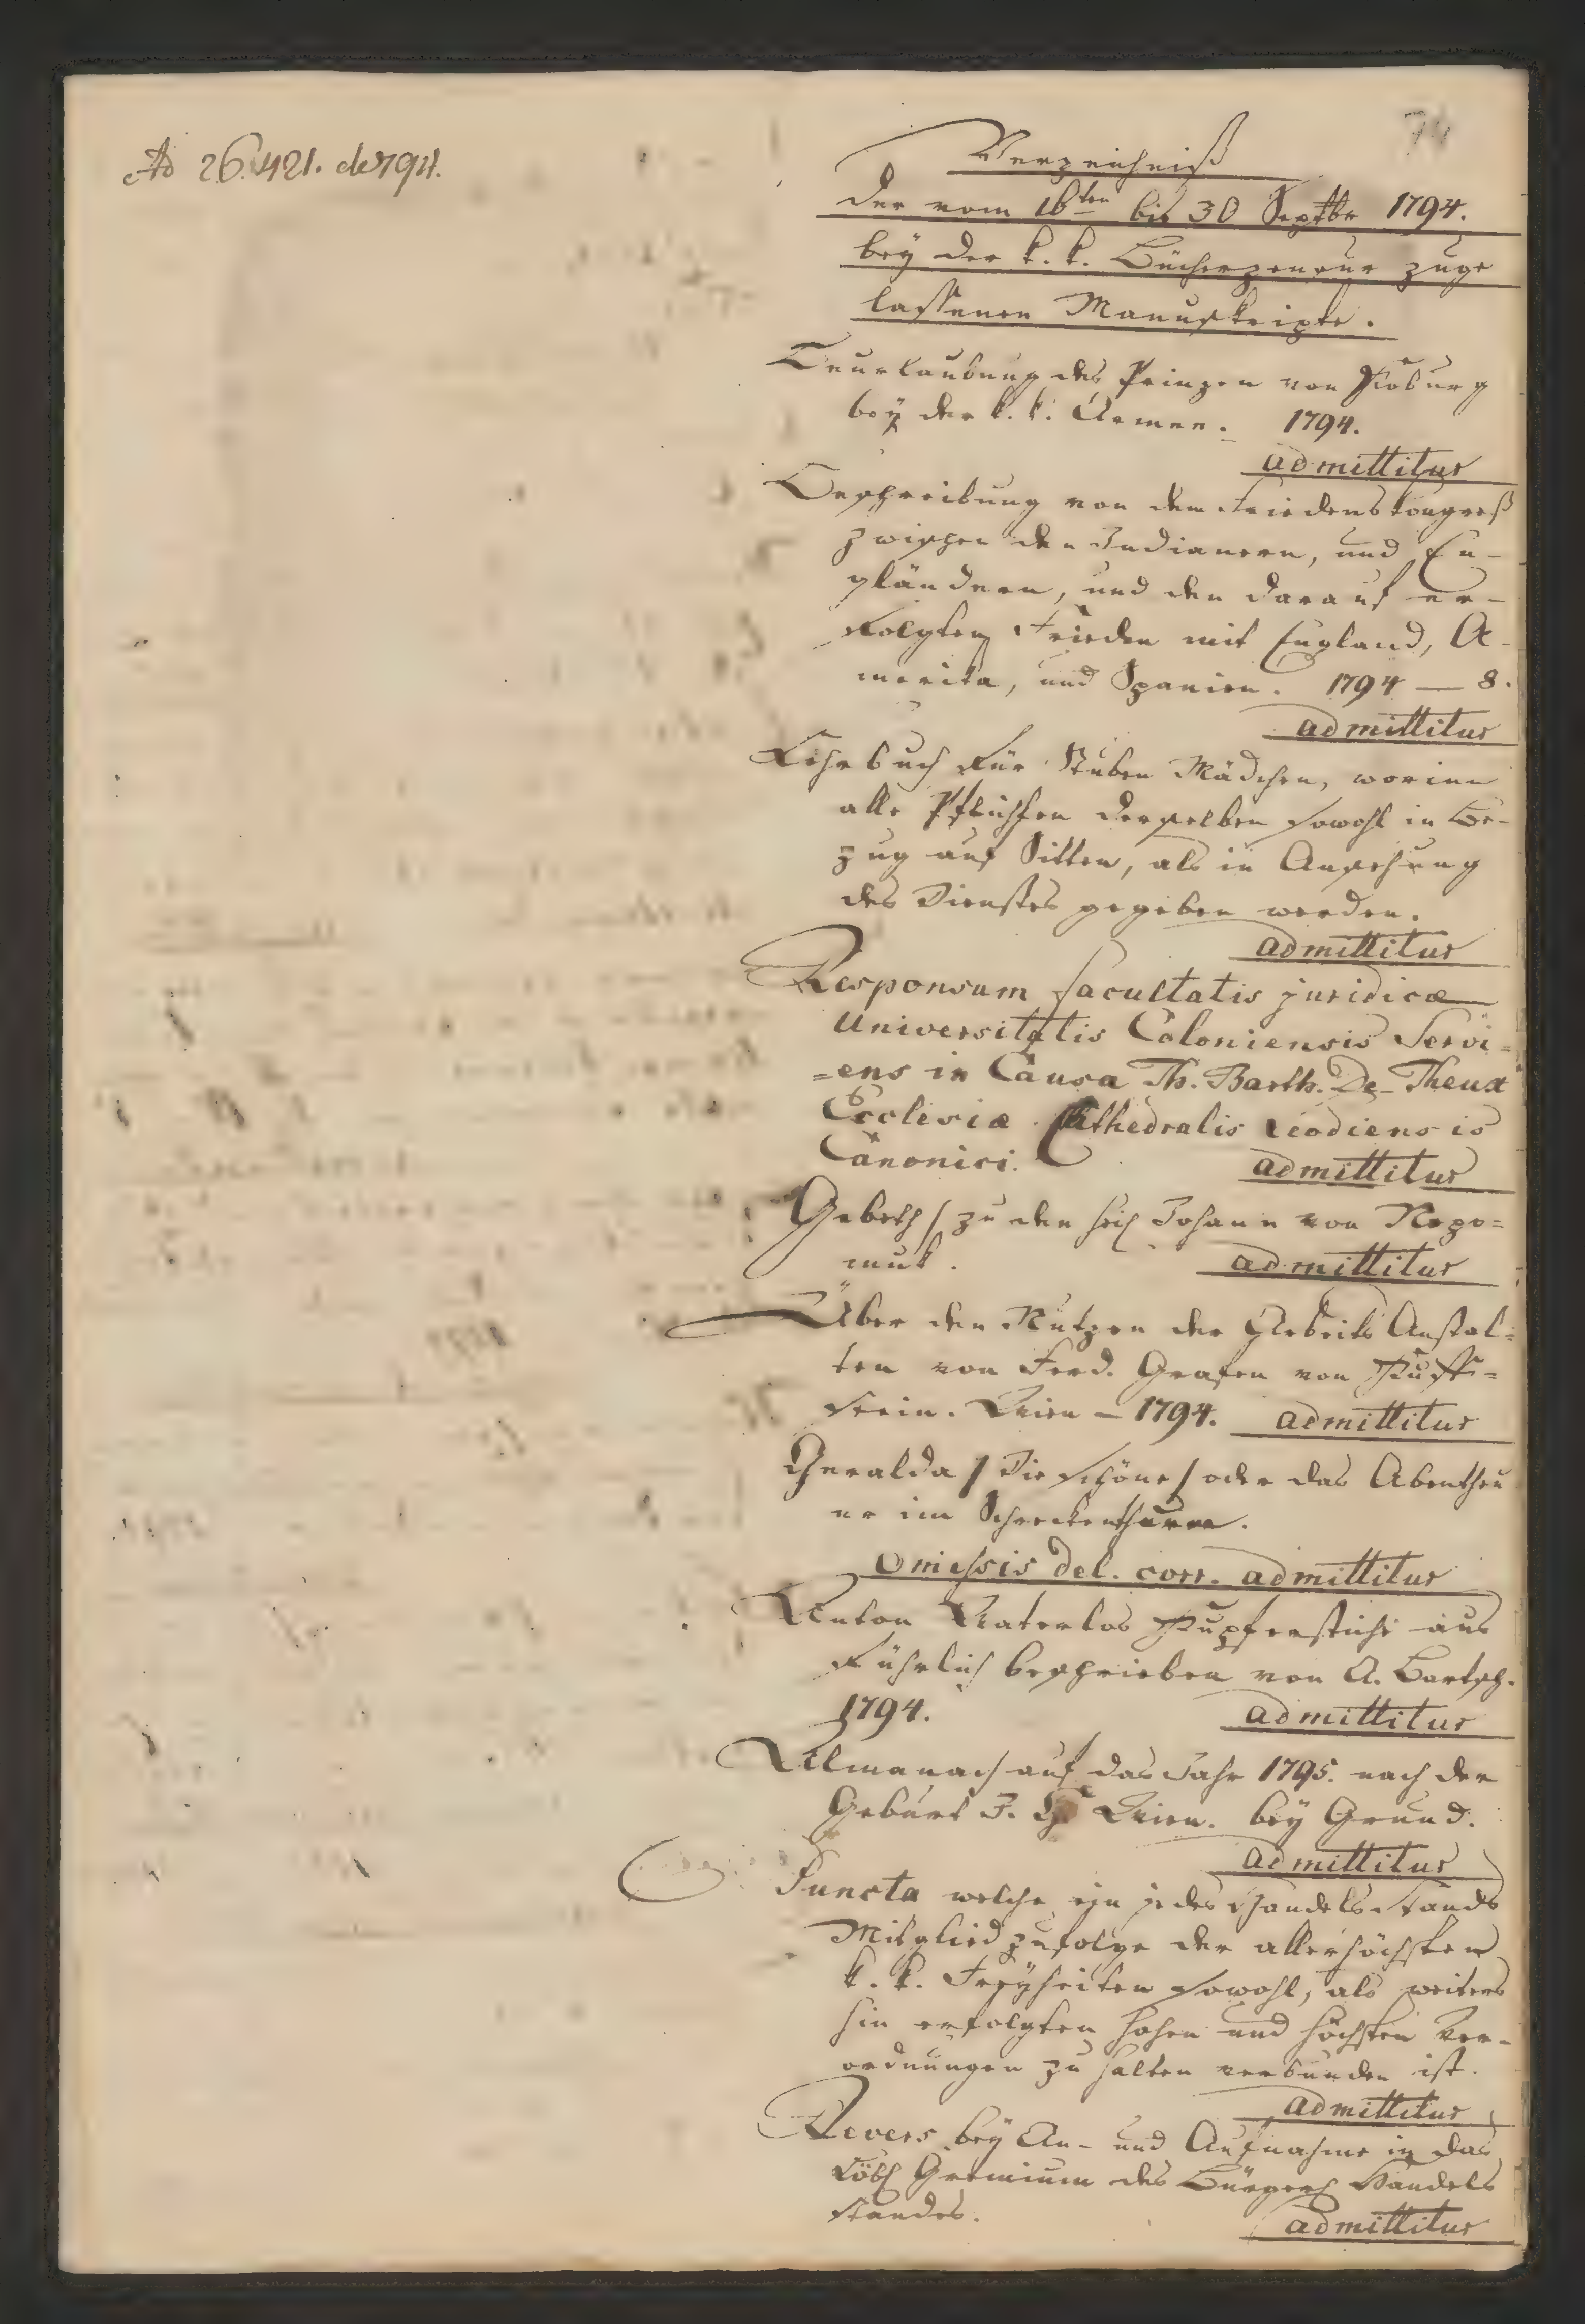 Ad 26421. de 794.
74
Verzeichniß
der vom 16ten bis 30 Septbr 1794.
bey der k. k. Bücherzensur zuge
lassenen Manuskripte.
Beurlaubung des Prinzen von Koburg
bey der k. k. Armee. 1794.
admittitur
Beschreibung von dem Friedenskongreß
zwischen den Indianern, und En-
gländern, und den darauf er-
folgten Frieden mit England, A-
merika, und Spanien. 1794 — 8.
admittitur
Lehrbuch für Stuben Mädchen, worinn
alle Pflichten derselben sowohl in Be-
zug auf Sitten, als in Ansehung
des Dienstes gegeben werden.
admittitur
Responsum facultatis juridicæ
Universitatis Coloniensis Servi=
=ens in Causa Th. Barth. De-Theux
Ecclesiæ Cathedralis Leodiensis
Canonici. admittitur
Gebeth / zu den heil Johann von Nepo=
muk. admittitur
Über den Nutzen der Arbeits Anstal=
ten von Ferd. Grafen von Kuff=
stein. Wien – 1794. admittitur
Geralda / Die schöne / oder das Abentheu
er im Schreckenthurm.
Omissis del. corr. admittitur
Anton Waterlos Kupferstiche aus
führlich beschrieben von A. Bartsch.
1794. admittitur
Allmanach auf das Jahr 1795. nach der
Geburt J. Ch Wien. bey Grund.
admittitur
Puncta welche ein jedes Handels Stands
Mitglied zufolge der allerhöchsten
k. k. Freyheiten sowohl, als weiters
hin erfolgten hohen und höchsten Ver-
ordnungen zu halten verbunden ist.
admittitur
Revers bey An- und Aufnahme in das
Löbl Gremium des Bürgerl Handels
standes. admittitur